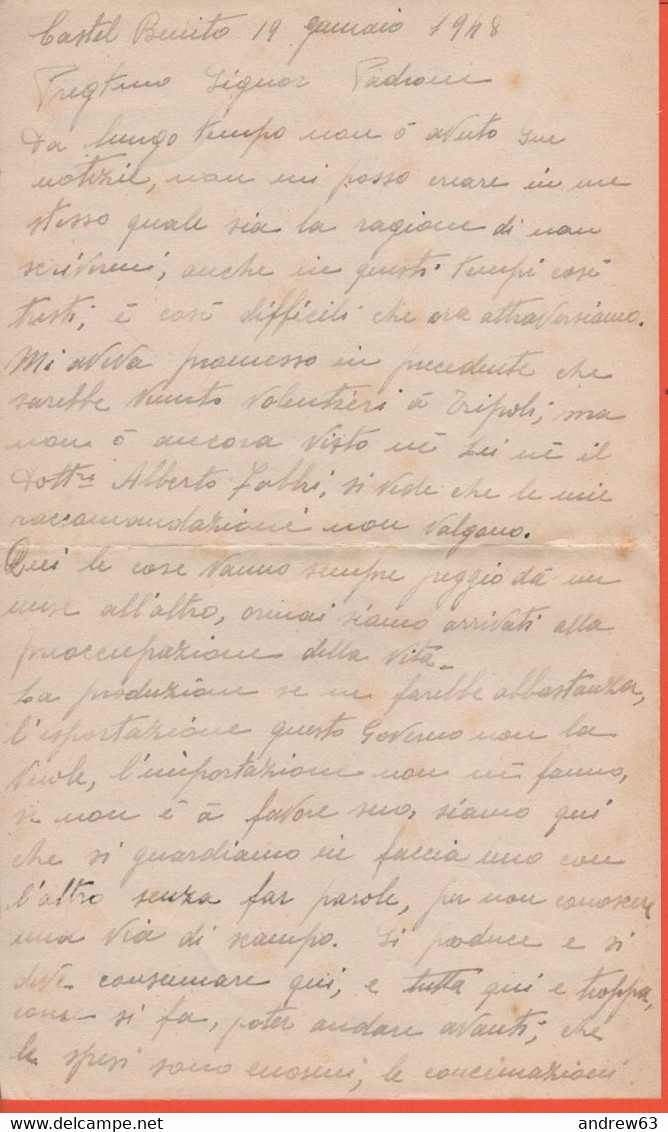 Castel Benito 19 gennaio 1948
Pregtmo Signor Padrone
Da lungo tempo non ó avuto sue
notizie, non mi posso creare in me
stesso quale sia la ragione di non
scrivermi, anche in questi tempi cosí
tristi, é cosí difficili che ora attraversiamo.
Mi aveva promesso in precedente che
sarebbe venuto volentieri á Tripoli, ma
non ó ancora visto né Lei né il
Dottre Alberto Fabbri, si vede che le mie
raccomandazioni non valgono.
Qui le cose vanno sempre peggio dá un
mese all'altro, ormai siamo arrivati alla
preoccupazione della vita.
La produzione se ne farebbe abbastanza,
l'esportazione questo Governo non la
vuole, l'importazione non né fanno,
se non é á favore suo, siamo qui
che si guardiamo in faccia uno con
l'altro senza far parole, per non conoscere
una via di scampo. Si produce e si
deve consumare qui, e tutta qui e troppa,
come si fa, poter andare avanti, che
le spesi sono enormi, le concimazioni
andrew63